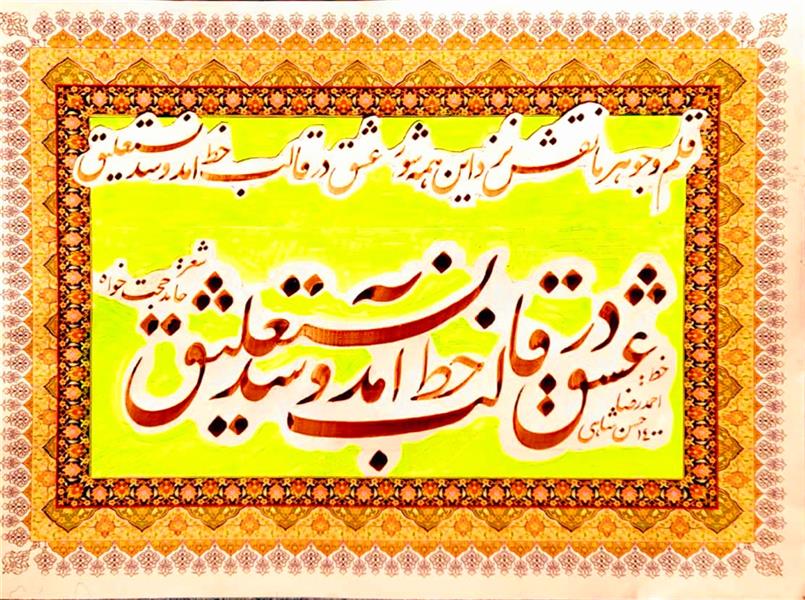 قلم و جوهر ما نقش نزد این همه شور عشق در قالب خط آمد و شد نستعلیق
شعر:
حامد حجت خواه
عشق در قالب خط آمد و شد نستعلیق
خط:
احمدرضا
حسن شاهی
۱۴۰۰